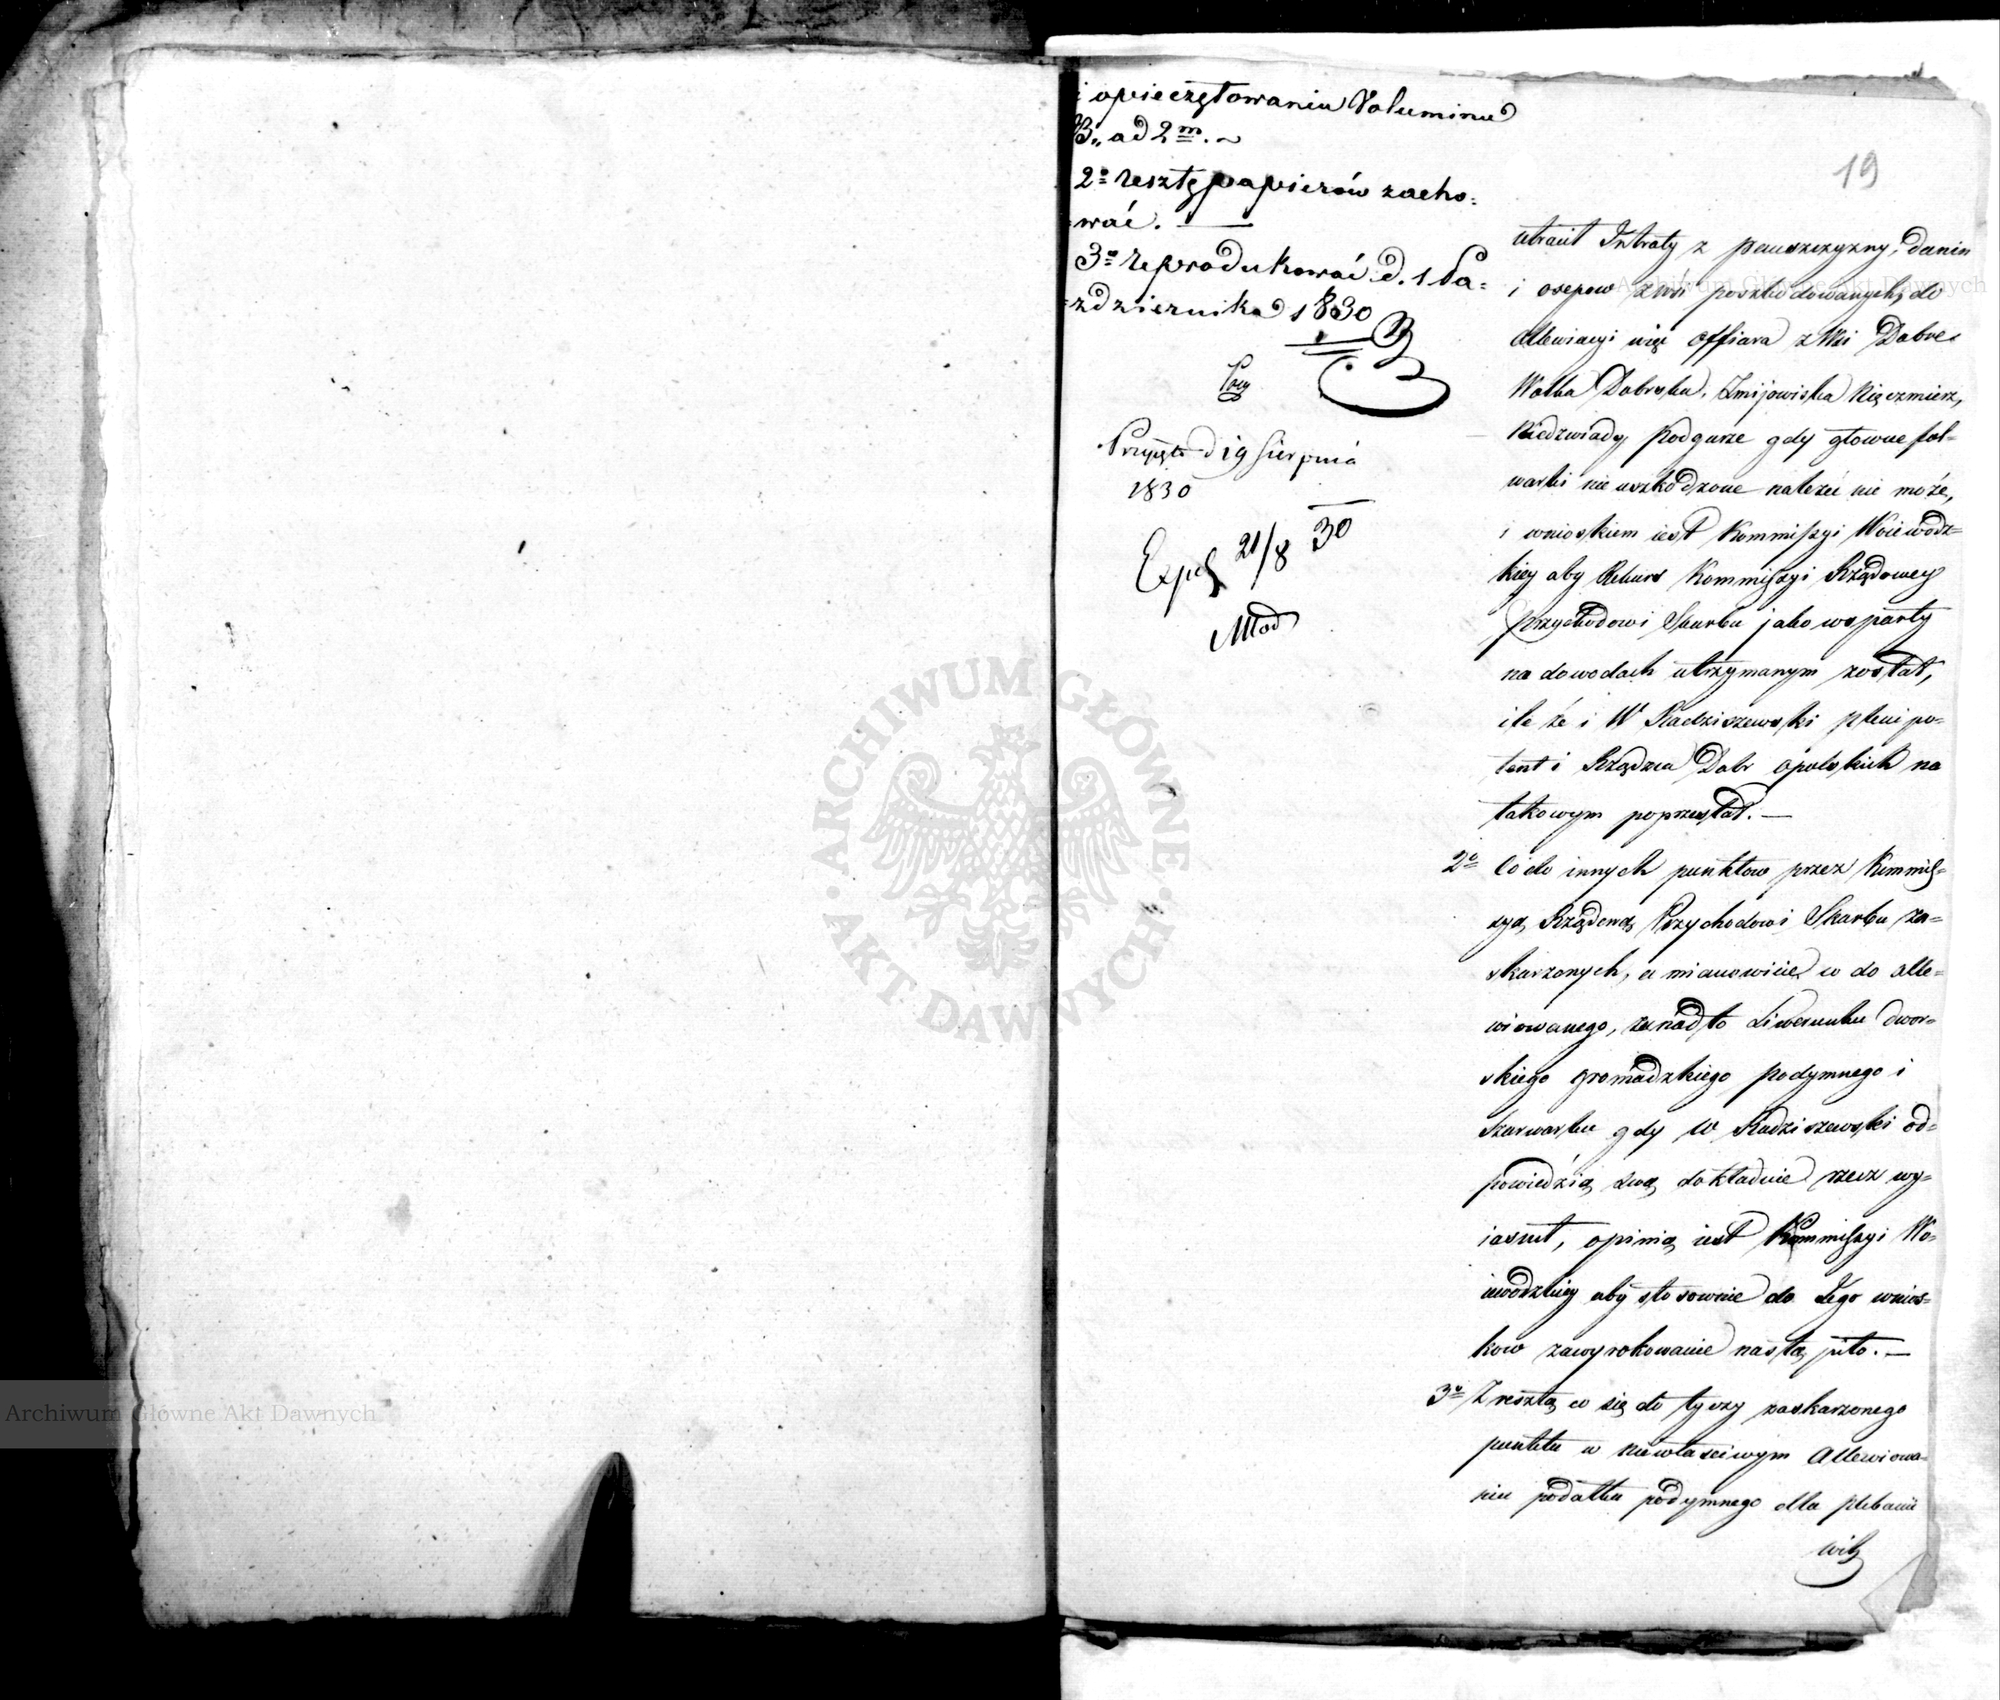 i opieczętowaniu Voluminu
B„ ad 2m. ~
2o resztę papierów zacho=
=wać. —
3o reprodukować d. 1 Pa=
=zdziernika 1830
Przyjęto d 19 Sierpnia
1830
Exped 21/8 30
Mlod
19
utracił Intraty z pańszczyzny, danin
i osepow z wsi poszkodowanych, do
allewiacyi więc offiara z Wsi Dobre
Wolka Dobrska, Zmijowiska Kięczmierz,
Niedzwiady Podgurze gdy głowne fol=
warki nie uszkodzone należeć nie może,
i wnioskiem iest Kommissyi Woiewodz=
kiey aby Rekurs Kommissyi Rządowey
Przychodowi Skarbu jako wsparty
na dowodach utrzymanym został,
ile że i W Radziszewski plenipo=
tent i Rządzca Dobr opolskich na
takowym poprzestał. —
2o Co do innych punktow przez Kommis=
syą Rządową Przychodow i Skarbu za=
skarzonych, a mianowicie co do alle=
wiowanego, zanadto Liwerunku dwor=
skiego gromadzkiego podymnego i
Szarwarku gdy W Radziszewski od=
powiedzią swą dokładnie rzecz wy=
iasnił, opinią iest Kommissyi Wo=
iewodzkiey aby stosownie do Jego wnios=
kow zawyrokowanie nastąpiło. —
3o Z resztą co się do tyczy zaskarzonego
punktu w niewłasciwym Allewiowa=
niu podatku podymnego dla plebanii
Wilk
ARCHIWUM GŁÓWNE AKT DAWNYCH
Archiwum Główne Akt Dawnych
Archiwum Główne Akt Dawnych